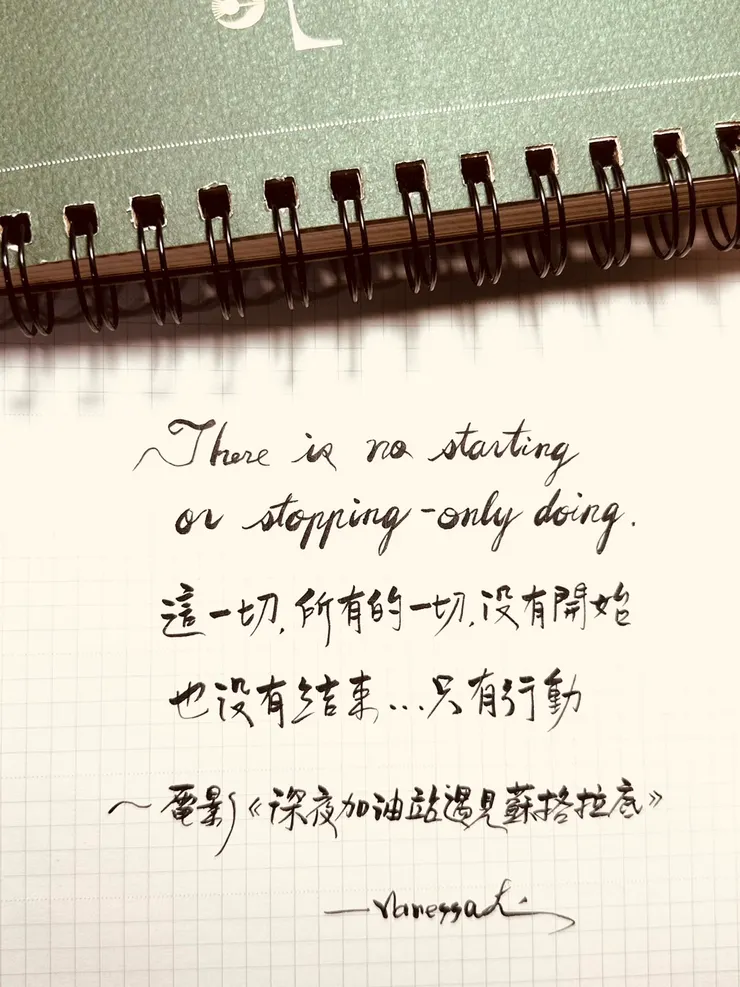 There is no starting
or stopping-only doing.
這一切,所有的一切,没有開始
也没有結束...只有行動
~電影《深夜加油站遇見蘇格拉底》
—Vanessa